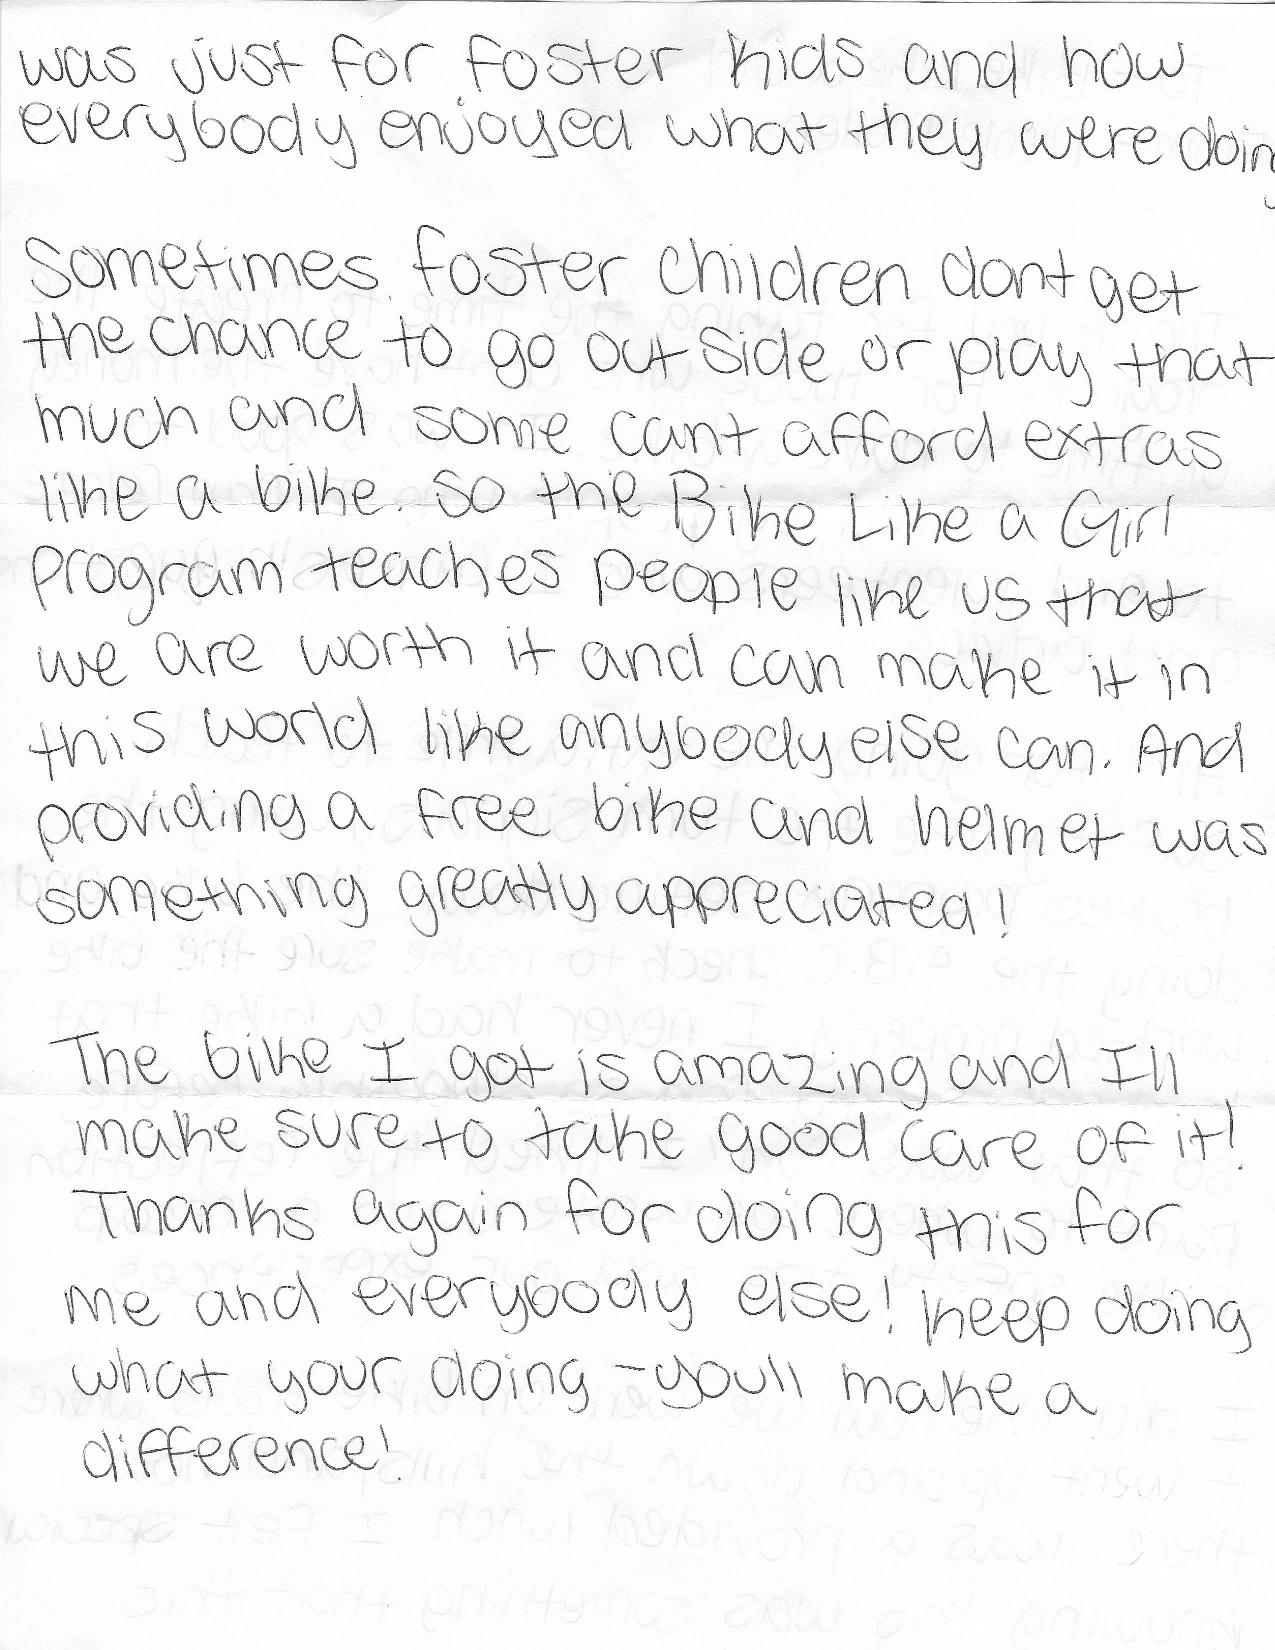 was just for foster kids and how
everybody enjoyed what they were doing
Sometimes foster children dont get
the chance to go outside or play that
much and some cant afford extras
like a bike. So the Bike Like a Girl
program teaches people like us that
we are worth it and can make it in
this world like anybody else can. And
providing a free bike and helmet was
something greatly appreciated!
The bike I got is amazing and I'll
make sure to take good care of it!
Thanks again for doing this for
me and everybody else! Keep doing
what your doing - you'll make a
difference!